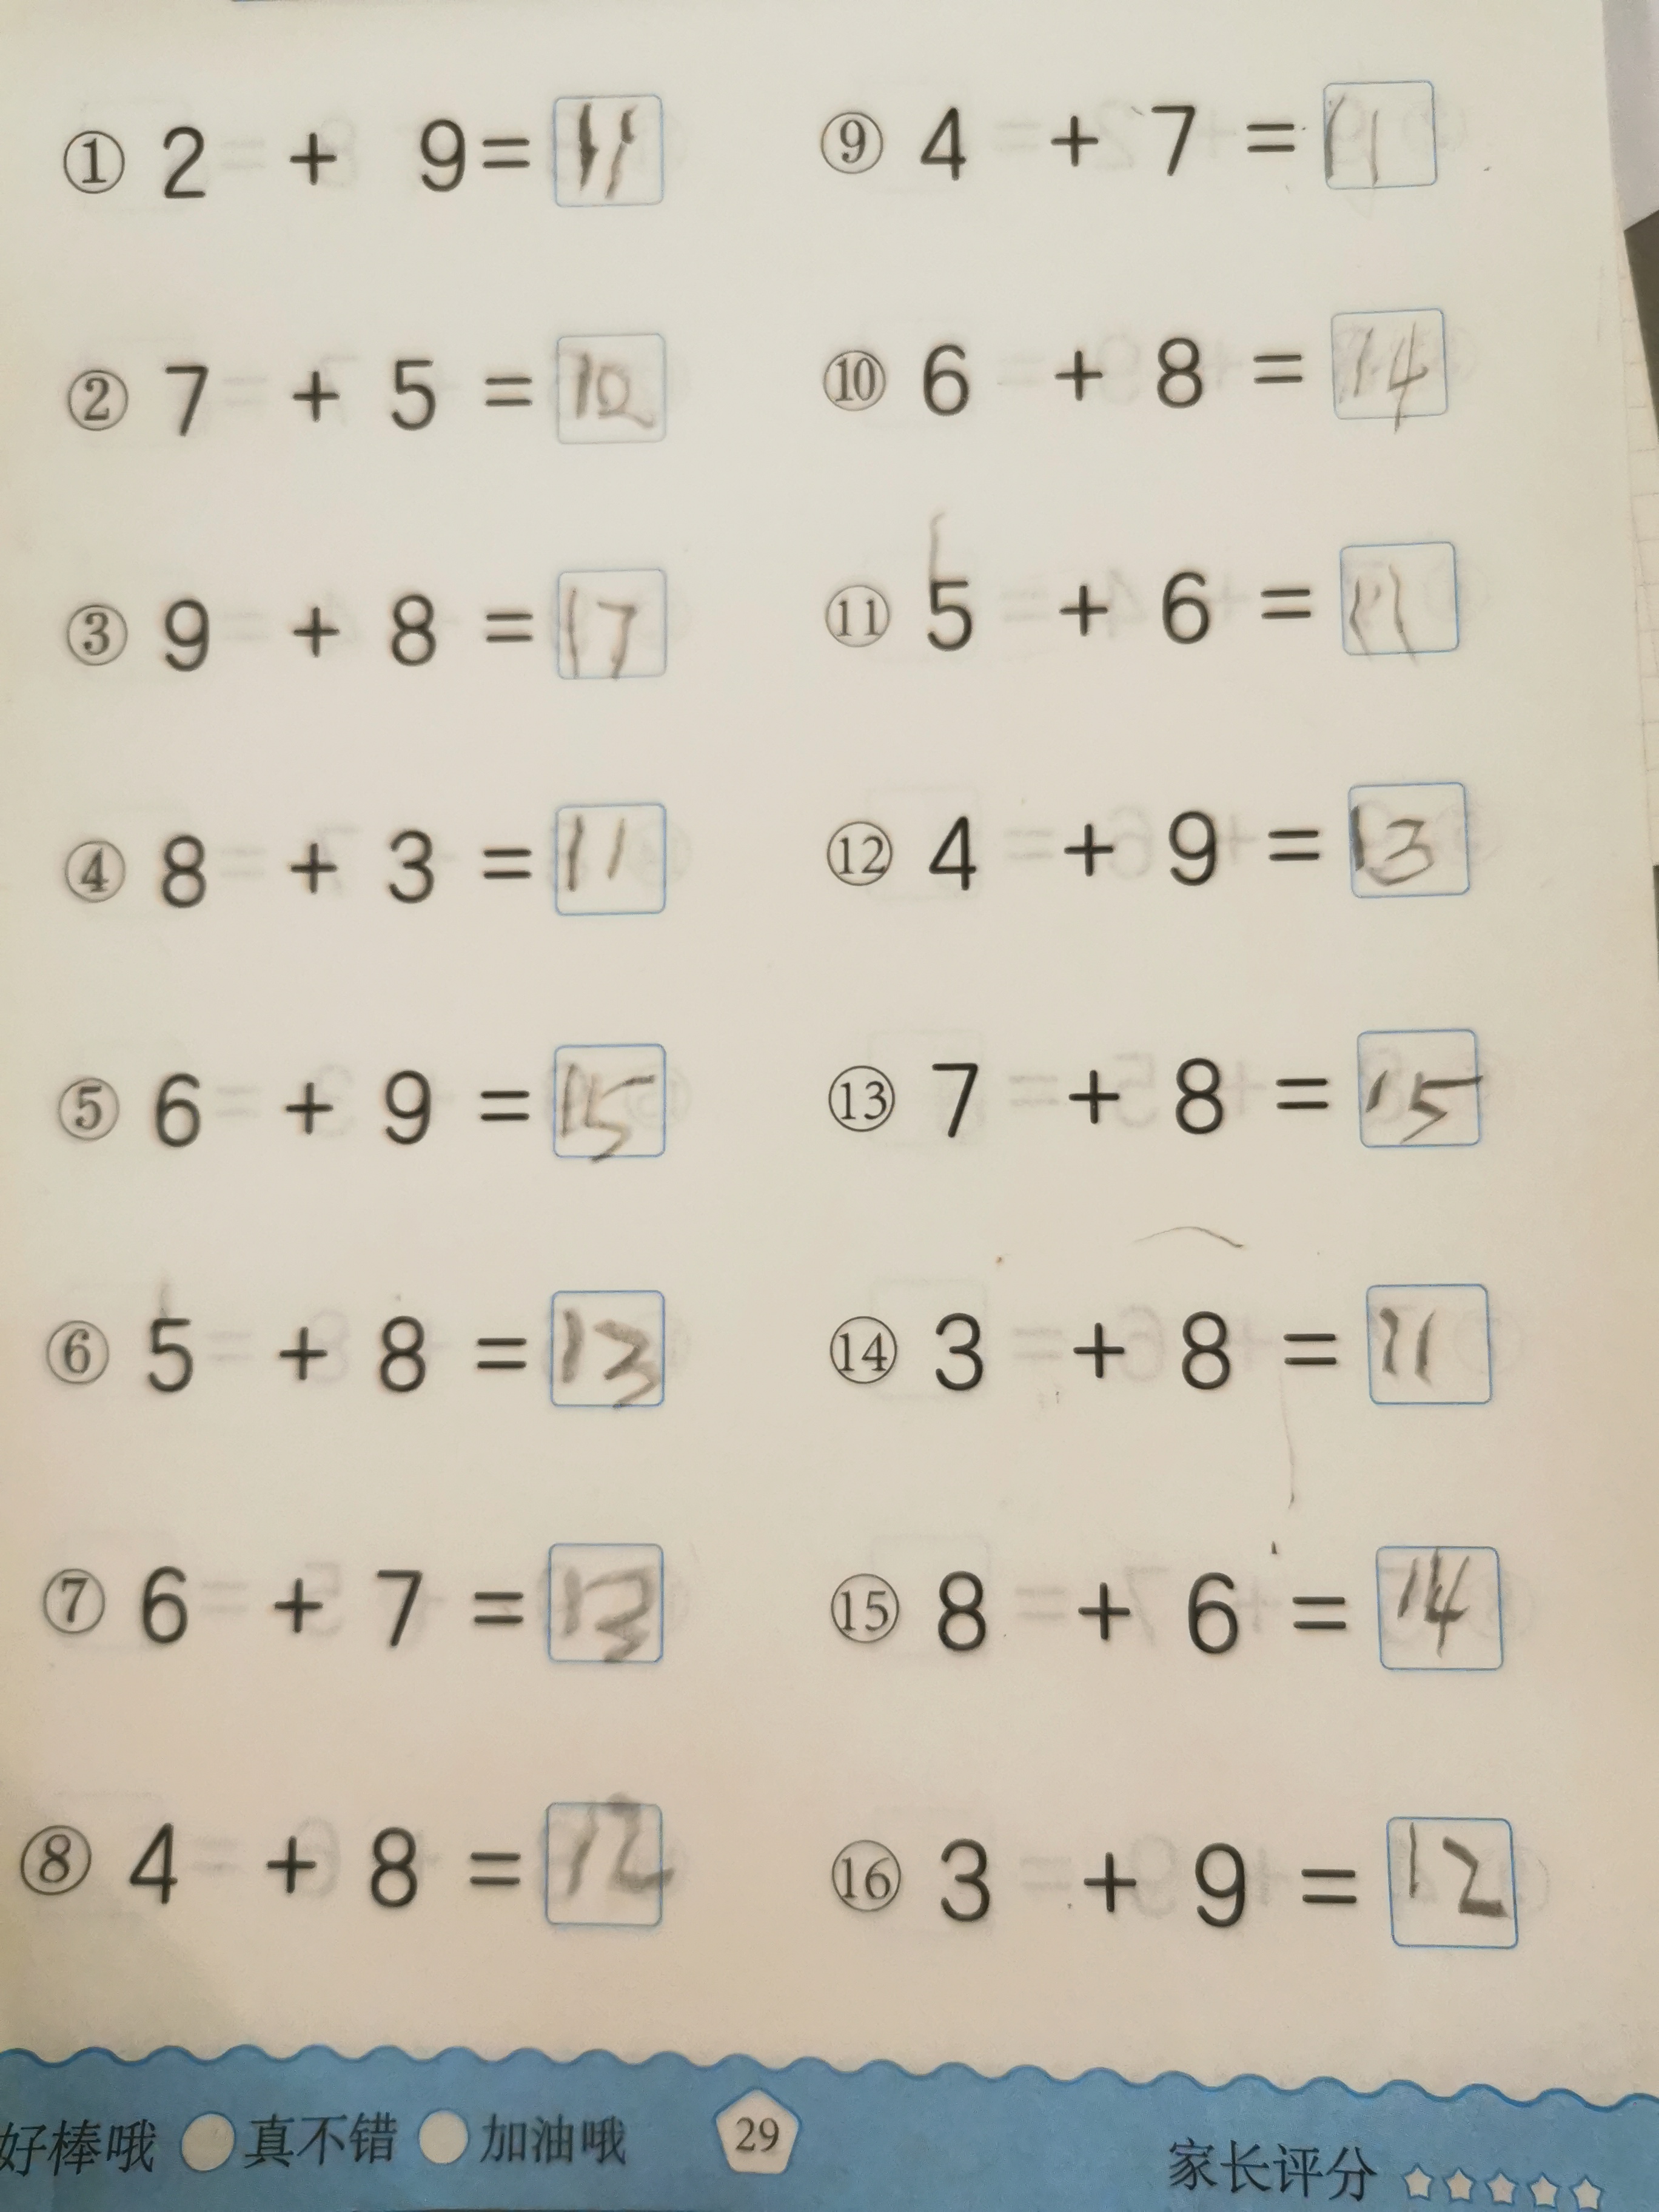 ① 2 + 9 = 11
② 7 + 5 = 12
③ 9 + 8 = 17
④ 8 + 3 = 11
⑤ 6 + 9 = 15
⑥ 5 + 8 = 13
⑦ 6 + 7 = 13
⑧ 4 + 8 = 12
⑨ 4 + 7 = 11
⑩ 6 + 8 = 14
⑪ 5 + 6 = 11
⑫ 4 + 9 = 13
⑬ 7 + 8 = 15
⑭ 3 + 8 = 11
⑮ 8 + 6 = 14
⑯ 3 + 9 = 12
好棒哦 真不错 加油哦
29
家长评分